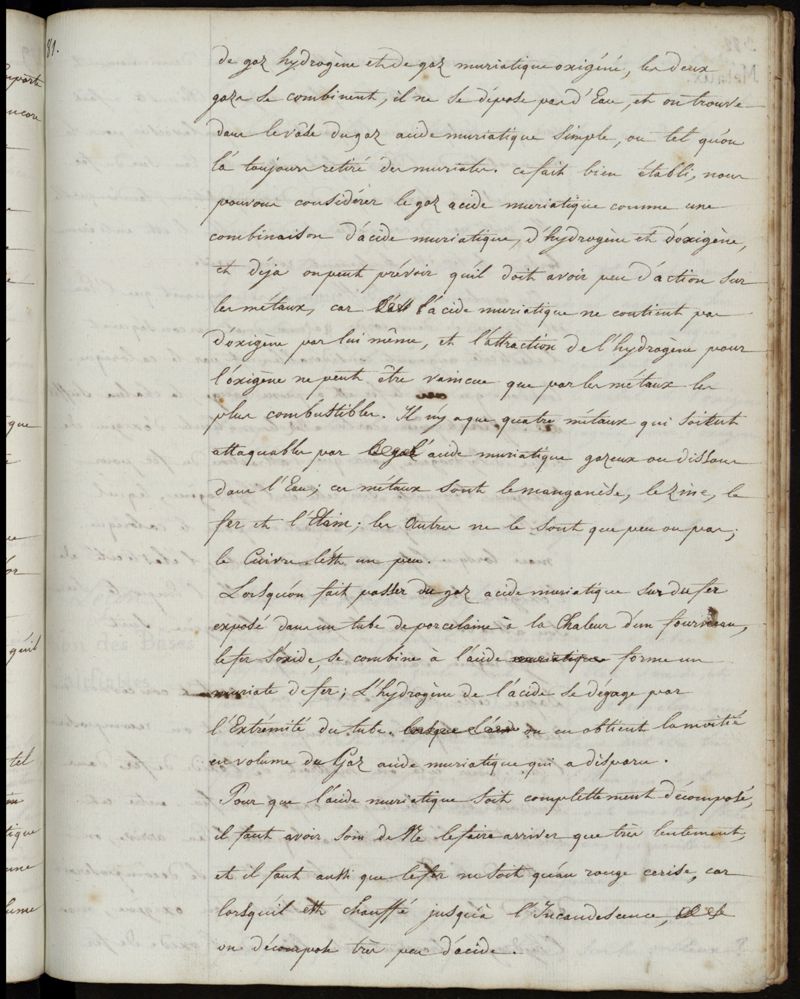 81.
de gaz hydrogène et de gaz muriatique oxigéné, les deux
gazs se combinent, il ne se dépose pas d'Eau, et on trouve
dans le vâse du gaz acide muriatique simple, ou tel qu'on
l'a toujours retiré des muriates. ce fait bien établi, nous
pouvons considérer le gaz acide muriatique comme une
combinaison d'acide muriatique, d'hydrogène et d'oxigène,
et déja on peut prévoir qu'il doit avoir peu d'action sur
les métaux, car l'acide muriatique ne contient pas
d'oxigène par lui même, et l'attraction de l'hydrogène pour
l'oxigène ne peut être vaincue que par les métaux les
plus combustibles. Il n'y a que quatre métaux qui soient
attaquables par l'acide muriatique gazeux ou dissous
dans l'Eau; ces métaux sont le manganèse, le zinc, le
fer et l'Etain; les Autres ne le sont que peu ou pas;
le Cuivre l'est un peu.
Lorsqu'on fait passer du gaz acide muriatique sur du fer
exposé dans un tube de porcelaine à la Chaleur d'un fourneau,
le fer s'oxide, se combine à l'acide muriatique forme un
muriate de fer; L'hydrogène de l'acide se dégage par
l'Extrémité du tube. lorsque l'on en obtient la moitié
en volume du Gaz acide muriatique qui a disparu.
Pour que l'acide muriatique soit complettement décomposé,
il faut avoir soin de Ne le faire arriver que très lentement,
et il faut aussi que le fer ne soit qu'au rouge cerise, car
lorsqu'il est chauffé jusqu'à l'Incandescence,
on décompose très peu d'acide.